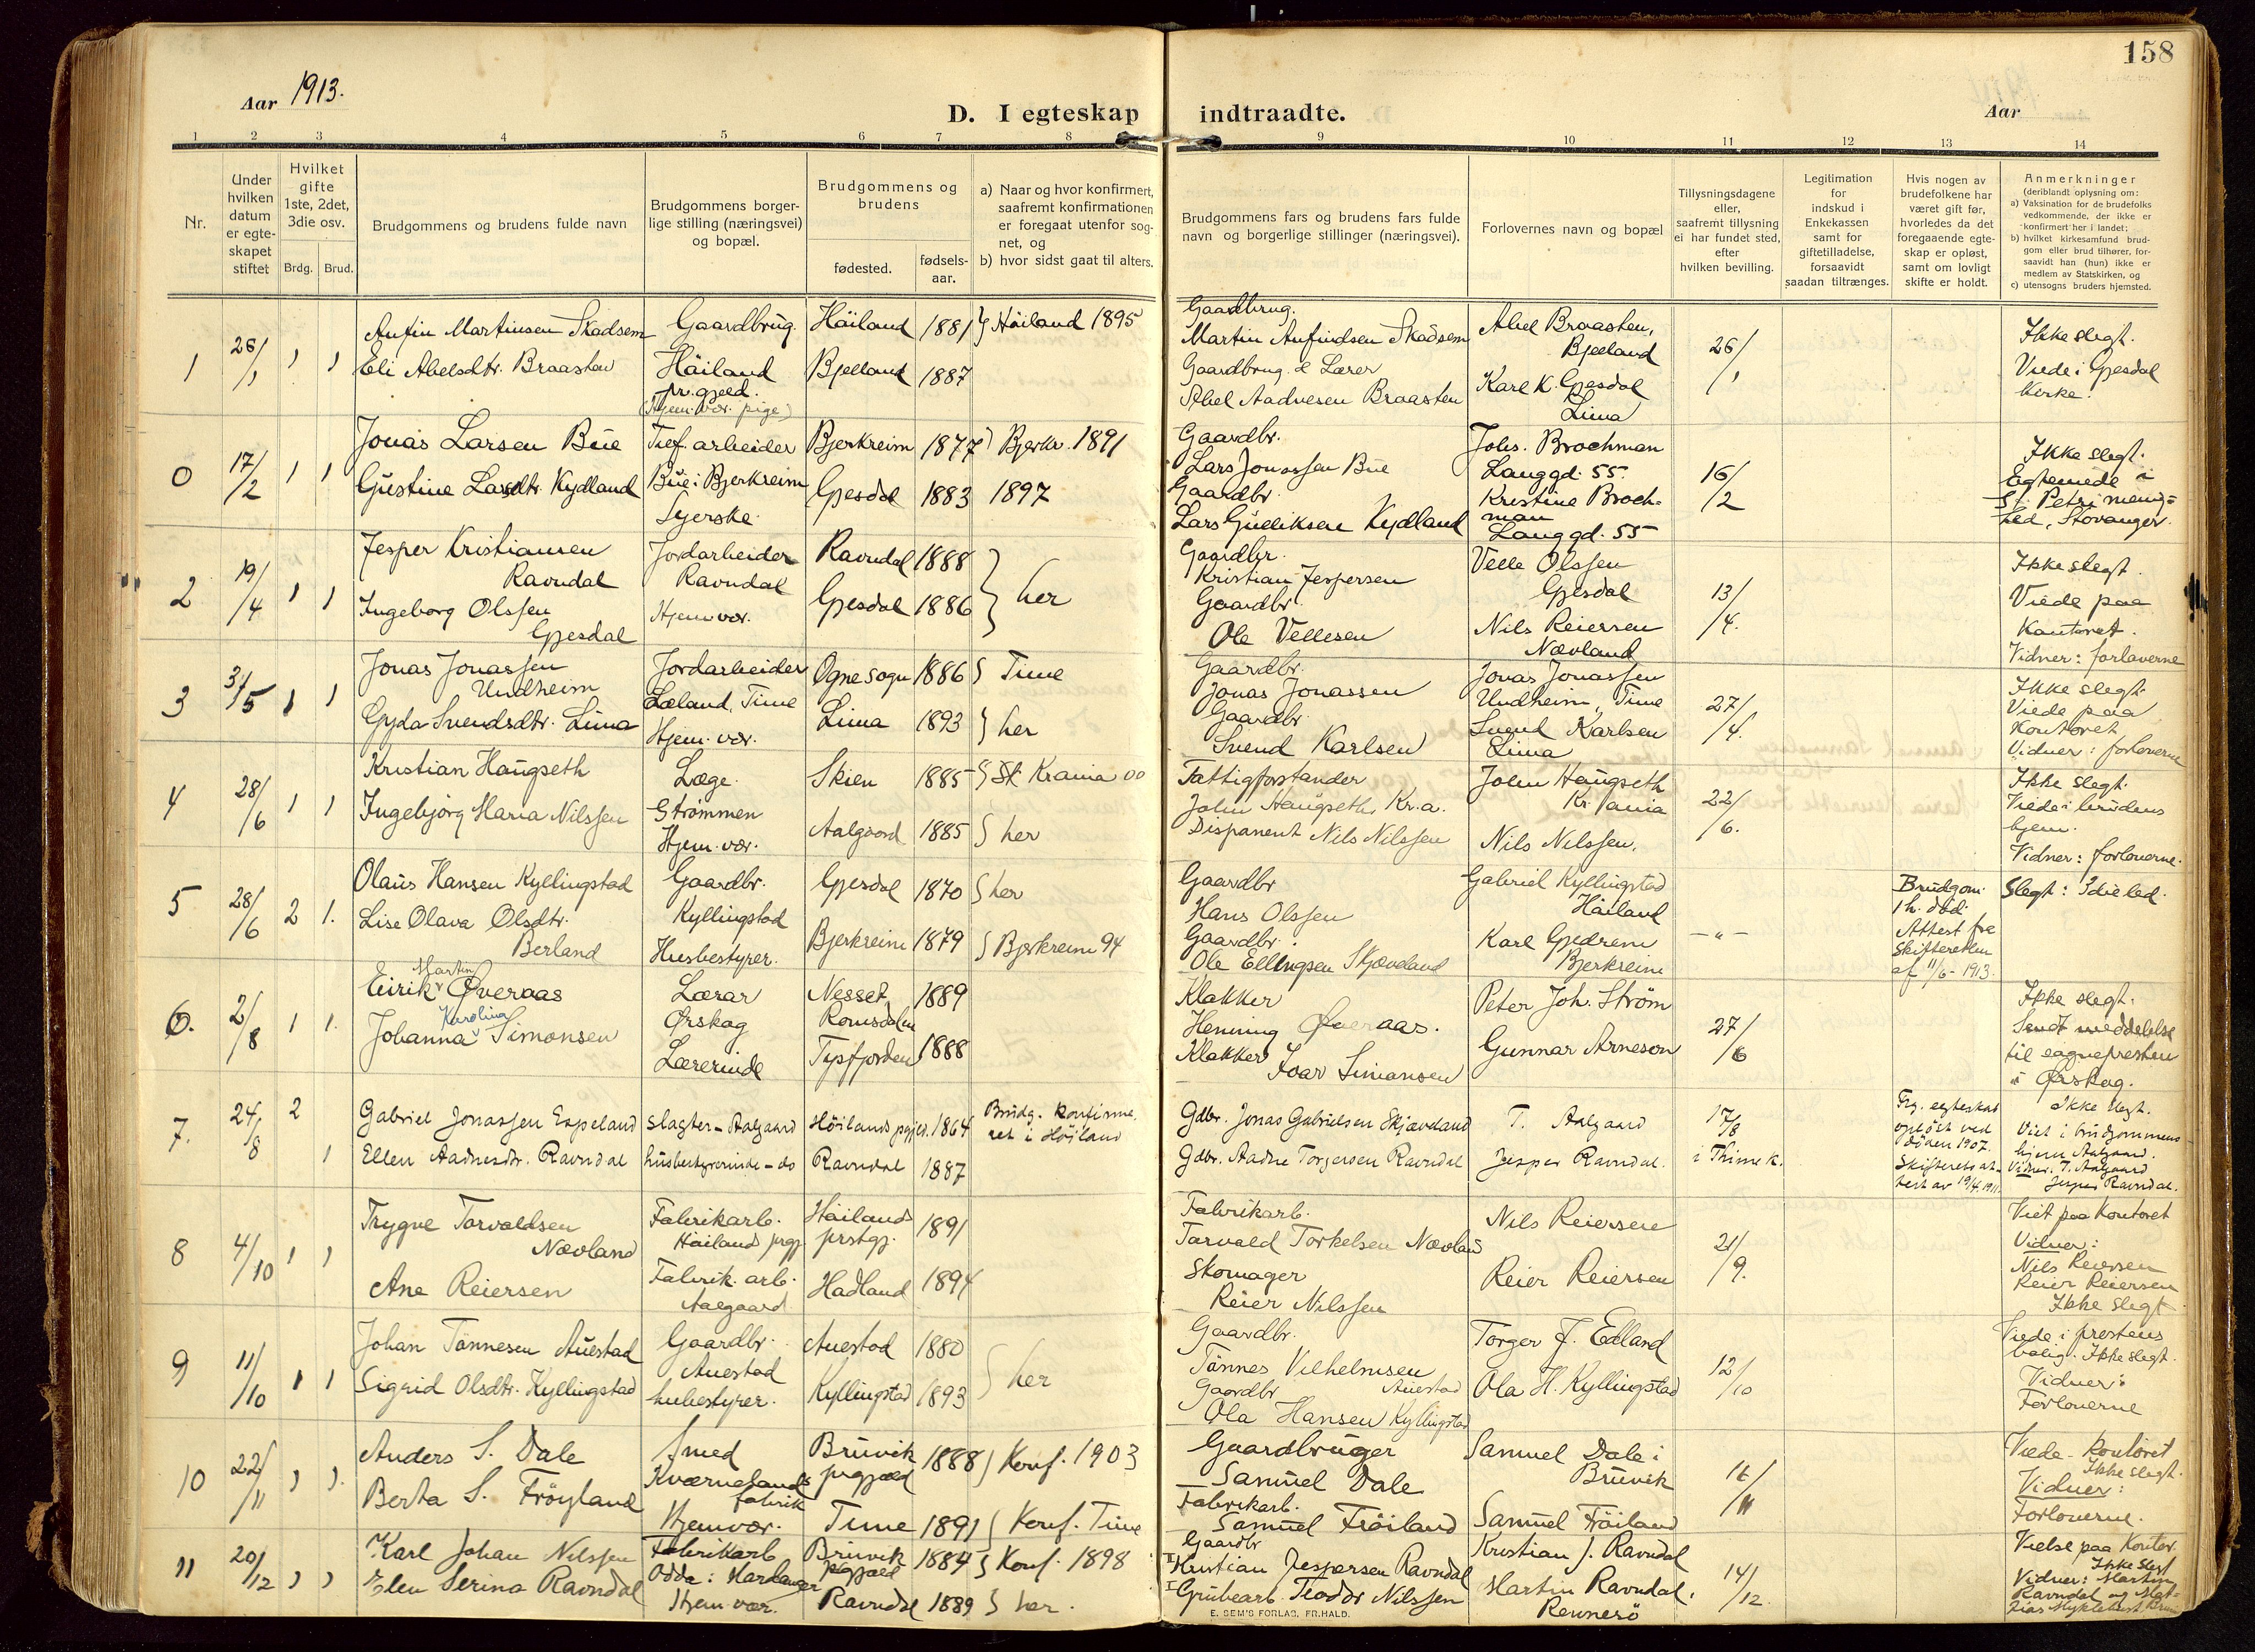 158
Aar 1913.
D. I egteskap indtraadte.
Aar
1 2 3 4 5 6 7 8 9 10 11 12 13 14
Nr.
Under hvilken datum er egte-skapet stiftet
Hvilket gifte 1ste, 2det, 3die osv.
Brdg. Brud.
Brudgommens og brudens fulde navn
Brudgommens borger-
lige stilling (næringsvei)
og bopæl.
Brudgommens og
brudens
fødested.
fødsels-
aar.
a) Naar og hvor konfirmert,
saafremt konfirmationen
er foregaat utenfor sog-
net, og
b) hvor sidst gaat til alters.
Brudgommens fars og brudens fars fulde
navn og borgerlige stillinger (næringsvei).
Forlovernes navn og bopæl
Tillysningsdagene
eller,
saafremt tillysning
ei har fundet sted,
efter
hvilken bevilling.
Legitimation
for
indskud i
Enkekassen
samt for
giftetilladelse,
forsaavidt
saadan tiltrænges.
Hvis nogen av
brudefolkene har
været gift før,
hvorledes da det
foregaaende egte-
skap er opløst,
samt om lovligt
skifte er holdt.
Anmerkninger
(deriblandt oplysning om:
a) Vaksination for de brudefolks
vedkommende, der ikke er
konfirmert her i landet;
b) hvilket kirkesamfund brud-
gom eller brud tilhører, for-
saavidt han (hun) ikke er
medlem av Statskirken, og
c) utensogns bruders hjemsted.
1
26/1
1 1
Anfin Martinsen Skadsem
Eli Abelsdtr. Braasten
Gaardbrug.
Häiland
pr.gjeld.
(Hjem. vær. pige)
Häiland 1881
Bjelland 1887
Häiland 1895
Gaardbrug.
Martin Anfindsen Skadsem
Gaardbrug. & Lærer
Abel Aadnesen Braasten
Abel Braasten,
Bjelland
Karl K. Gjesdal
Lima
26/1
Ikke slegt.
Viede i Gjesdal
kirke.
0
17/2
1 1
Jonas Larsen Bue
Gustine Larsdtr. Kydland
arbeider
Bue i Bjerkreim
Syerske
Bjerkreim 1877
Gjesdal 1883
Bjerkr. 1891
1897
Gaardbr.
Lars Jonassen Bue
Gaardbr.
Lars Gudliksen Kydland
Johs. Brochman
Langgd. 55.
Kristine Broch-
man
Langgd. 55
16/2
Ikke slegt.
Egteviede i
St. Petri menig-
hed, Stavanger.
2
19/4
1 1
Jesper Kristiansen
Ravndal
Ingeborg Olssen
Gjesdal
Jordarbeider
Ravndal
Hjemvær.
Ravndal 1888
Gjesdal 1886
her
Gaardbr.
Kristian Jespersen
Gaardbr.
Ole Vellesen
Velle Olssen
Gjesdal
Nils Reiersen
Nævland
13/4.
Ikke slegt.
Viede paa
Kontoret.
Vidner: forloverne
3
3/5
1 1
Jonas Jonassen
Undheim
Gyda Svendsdtr. Lima
Jordarbeider
Læland, Time
Hjem. vær.
Ogne sogn 1886
Lima 1893
Time
her
Gaardbr.
Jonas Jonassen
Gaardbr.
Svend Karlsen
Jonas Jonassen
Undheim, Time
Svend Karlsen
Lima
27/4.
Ikke slegt.
Viede paa
Kontoret
Vidner: forloverne
4
28/6
1 1
Kristian Haugseth
Ingebjörg Maria Nilssen
Læge.
Strømmen
Hjem. vær.
Skien 1885
Aalgaard 1885
Krania 00
her
Fattigforstander
John Haugseth, Kr.a.
Disponent Nils Nilssen
John Haugseth
Kr.ania
Nils Nilssen.
22/6.
Ikke slegt.
Viede i brudens
hjem.
Vidner: forloverne.
5
28/6
2 1.
Olaus Hansen Kyllingstad
Lise Olava Olsdtr.
Berland
Gaardbr.
Kyllingstad
Husbestyrer.
Gjesdal 1870
Bjerkreim 1879
her
Bjerkreim 94
Gaardbr
Hans Olssen
Gaardbr.
Ole Ellingsen Skjæveland
Gabriel Kyllingstad
Häiland
Karl Gjedrem
Bjerkreim
-"-
Brudgom.
1 h. død
Attest fra
Skifteretten
af 11/6-1913.
Slegt: 3die led.
6.
2/8
1 1.
Eirik Martin Øveraas
Johanna Karolina Simonsen
Lærar
Ørskog
Lærerinde
Nesset, 1889
Romsdalen
Tysfjorden 1888
Klakker
Henning Øveraas.
Klakker
Ivar Simonsen
Peter Joh. Strøm
Gunnar Arneson
27/6
Ikke slegt.
Sendt meddelelse
til sognepresten
i Ørskog.
7.
24/8
2
1
Gabriel Jonassen Espeland
Ellen Aadnesdtr. Ravndal
Slagter - Aalgaard
husbestyrerinde - do
Höilands pgjeld. 1864
Ravndal 1887
Brudg. konfirme-
ret i Höiland
Gdbr. Jonas Gabrielsen Skjæveland
Gdbr. Aadne Torgersen Ravndal
T. Aalgaard
Jesper Ravndal.
17/8
i Thime k.
Frg. egteskab
opløst ved
döden 1907.
Skifterets at-
test av 19/4 1911.
Ikke slegt.
Viet i brudgommens
hjem Aalgaard.
Vidner. T. Aalgaard
Jesper Ravndal.
8
4/10
1 1
Trygve Torvaldsen
Nævland
Ane Reiersen
Fabrikarb.
Häilands prgj.
Fabrik. arb.
Aalgaard
Häilands 1891
prstgj.
Hadland 1894
Fabrikarb.
Torvald Torkelsen Nævland
Skomager
Reier Nilssen
Nils Reiersen
Reier Reiersen
21/9.
Viet paa Kontoret
Vidner:
Nils Reiersen
Reier Reiersen
Ikke slegt.
9
11/10
1 1
Johan Tönnesen Auestad
Sigrid Olsdtr. Kyllingstad
Gaardbr.
Auestad
husbestyrer.
Auestad 1880
Kyllingstad 1893
her
Gaardbr.
Tönnes Vilhelmsen
Auestad
Gaardbr
Ola Hansen Kyllingstad
Torger J. Edland
Ola H. Kyllingstad
12/10
Viede i prestens
bolig. Ikke slegt.
Vidner:
Forloverne
10
22/11
1 1.
Anders S. Dale
Berta S. Fröyland
Smed
Kværnelands
fabrik
Hjemvær.
Bruvik 1888
prgjæld
Time 1891
Konf. 1903
Konf. Time
Gaardbruger
Samuel Dale
Fabrikarb.
Samuel Fröiland
Samuel Dale i
Bruvik
Samuel Fröiland
16/11
Viede Kontoret
Ikke slegt.
Vidner:
Forloverne.
11
20/12
1 1
Karl Johan Nilssen
Elen Serina Ravndal
Fabrikarb
Odda i Hardanger
Hjem. vær.
Bruvik 1884
prgjæld
Ravndal 1889
Konf. 1898
her.
Gaardbr
II Kristian Jespersen Ravndal
I Grubearb. Teodor Nilssen
Kristian J. Ravndal
Martin Ravndal.
Rennesö
14/12.
Vielse paa Kontor.
Ikke slegt
Vidner: Martin
Ravndal og Mat-
E. SEM'S FORLAG, FR.HALD.